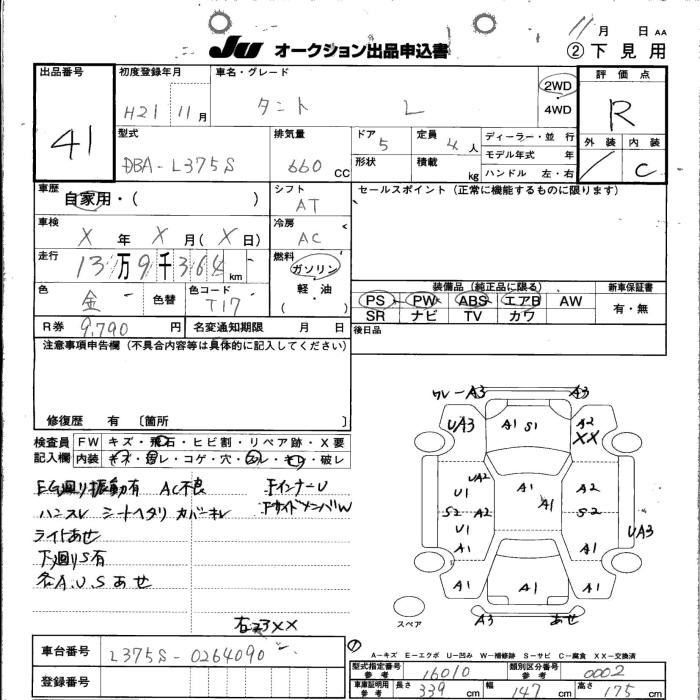 11月 日 AA
JU オークション出品申込書 ②下見用
出品番号 初度登録年月 車名・グレード 評価点
41 H21 11月 タント L 2WD R
・
4WD
型式 排気量 ドア 定員 ディーラー・並行 外装 内装
DBA-L375S 660 CC 5 4人 モデル年式 年 / C
形状 積載 kg ハンドル 左・右
車歴 シフト セールスポイント(正常に機能するものに限ります)
自家用・( ) AT
車検 冷房
X年 X月(X日) AC
走行 燃料
13万9千364km ガソリン
軽・油
( )
色 金 色替 色コード T17
装備品(純正品に限る) 新車保証書
PS PW ABS エアB AW 有・無
SR ナビ TV カワ
R券 9,790円 名変通知期限 月 日 後日品
注意事項申告欄(不具合内容等は具体的に記入してください)
修復歴 有 〔箇所 〕
検査員 FW キズ・飛石・ヒビ割・リペア跡・X要
記入欄 内装 キズ・ヨレ・コゲ・穴・・キレ・破レ
EG廻り振動有 AC不良 FインナーU
ハンスレ シートヘタリ カバーキレ FサイドメンバW
ライトあせ
下廻りS有
各A.U.Sあせ
ワレーA3 A3
UA3 A1 S1 A2
XX
UA2 A1 A2
U1 A1
S2 A2 S2
U1 UA3
A1 A1
A1 A1 A1
スペア A3 あせ
A-キズ E-エクボ U-凹み W-補修跡 S-サビ C-腐食 XX-交換済
車台番号 L375S-0264090
登録番号
型式指定番号 参考 16010 類別区分番号 参考 0002
車庫証明用 参考 長さ 339 cm 幅 147 cm 高さ 175 cm